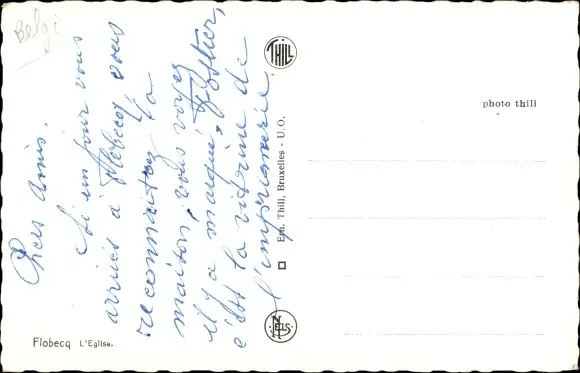 Belgi
Chers amis.
Si un jour vous
arrivés à Flobecq vous
reconnaitrez la
maison, vous voyez
il y a marqué,
c'est la vitrine de
l'imprimerie.
THILL
photo thill
Ern. Thill, Bruxelles - U.O.
NELS
Flobecq L'Eglise.